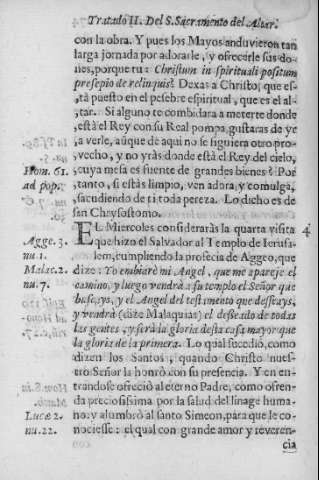 Tratado II. Del S. Sacramento del Altar.
con la obra. Y pues los Mayos anduvieron tan
larga jornada por adorarle, y ofrecerle sus do-
nes, porque tu: Christum in spirituali positum
presepio de relinquis? Dexas à Christo, que es-
tà puesto en el pesebre espiritual, que es el al-
tar. Si alguno te combidara a meterte donde
està el Rey con su Real pompa, gustaras de ye
a verle, aũque de aqui no se siguiera otro pro-
vecho, y no yràs donde està el Rey del cielo,
Hom. 61. cuya mesa es fuente de grandes bienes? Por
ad pop. tanto, si estàs limpio, ven adora, y comulga,
sacudiendo de ti toda pereza. Lo dicho es de
san Chrysostomo.
EL Miercoles consideraràs la quarta visita 4
Agge. 3. que hizo el Salvador al Templo de Ierusa-
nu. 1. lem, cumpliendo la profecia de Aggeo, que
Malac. 2. dize: Yo embiarè mi Angel, que me apareje el
nu. 7. camino, y luego vendrà a su templo el Señor que
buscays, y el Angel del testamento que desseays,
y vendrà (dize Malaquias) el desseado de todas
las gentes, y serà la gloria desta casa mayor que
la gloria de la primera. Lo qual sucediò, como
dizen los Santos, quando Christo nues-
tro Señor la honrò con su presencia. Y en en-
trandose ofreciò al eterno Padre, como ofren-
da preciosissima por la salud del linage huma-
Lucæ 2. no: y alumbrò al santo Simeon, para que le co-
nu. 22. nociesse: el qual con grande amor y reveren-
cia